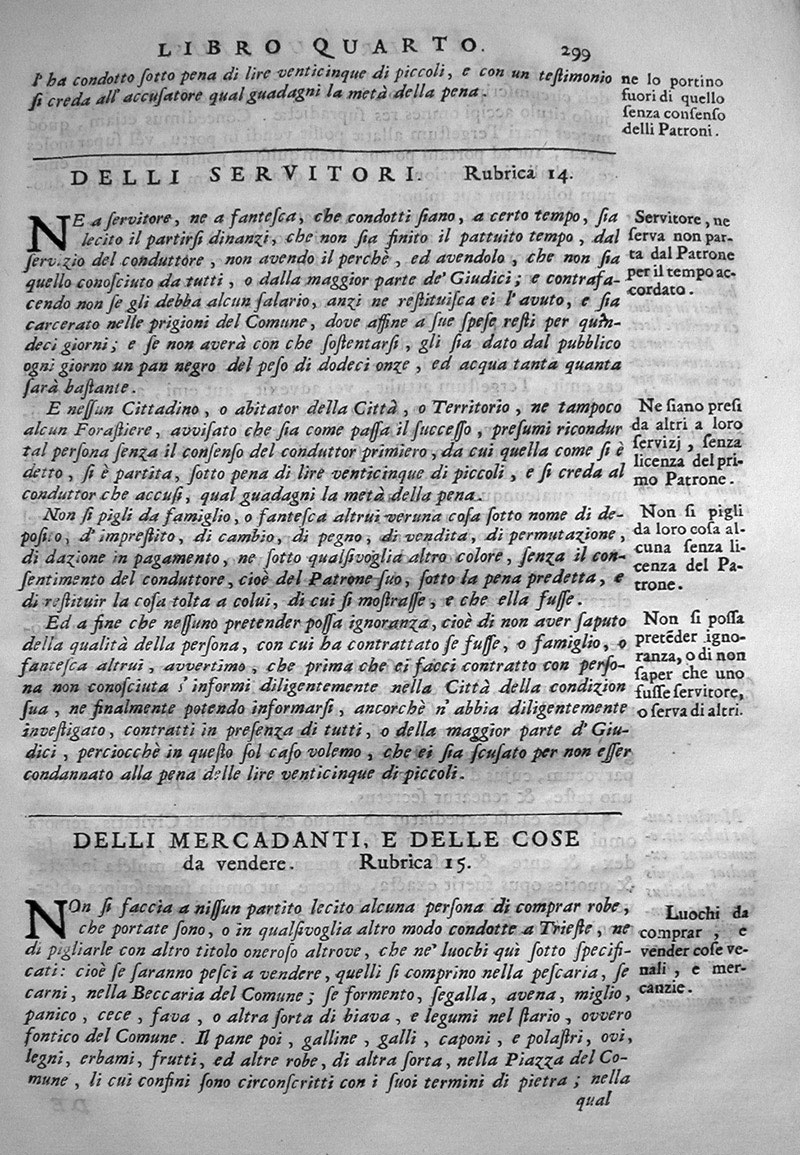 LIBRO QUARTO. 299
l'ha condotto ſotto pena di lire venticinque di piccoli, e con un teſtimonio
ſi creda all' accuſatore qual guadagni la metà della pena.
ne lo portino
fuori di quello
ſenza conſenſo
delli Patroni.
DELLI SERVITORI. Rubrica 14.
NE a ſervitore, ne a fanteſca, che condotti ſiano, a certo tempo, ſia
lecito il partirſi dinanzi, che non ſia finito il pattuito tempo, dal
ſervizio del conduttore, non avendo il perchè, ed avendolo, che non ſia
quello conoſciuto da tutti, o dalla maggior parte de' Giudici; e contrafa-
cendo non ſe gli debba alcun ſalario, anzi ne reſtituiſca ei l'avuto, e ſia
carcerato nelle prigioni del Comune, dove affine a ſue ſpeſe reſti per quin-
deci giorni; e ſe non averà con che ſoſtentarſi, gli ſia dato dal pubblico
ogni giorno un pan negro del peſo di dodeci onze, ed acqua tanta quanta
ſarà baſtante.
Servitore, ne
ſerva non par-
ta dal Patrone
per il tempo ac-
cordato.
E neſſun Cittadino, o abitator della Città, o Territorio, ne tampoco
alcun Foraſtiere, avviſato che ſia come paſſa il ſucceſſo, preſumi ricondur
tal perſona ſenza il conſenſo del conduttor primiero, da cui quella come ſi è
detto, ſi è partita, ſotto pena di lire venticinque di piccoli, e ſi creda al
conduttor che accuſi, qual guadagni la metà della pena.
Ne ſiano preſi
da altri a loro
ſervizj, ſenza
licenza del pri-
mo Patrone.
Non ſi pigli da famiglio, o fanteſca altrui veruna coſa ſotto nome di de-
poſito, d' impreſtito, di cambio, di pegno, di vendita, di permutazione,
di dazione in pagamento, ne ſotto qualſivoglia altro colore, ſenza il con-
ſentimento del conduttore, cioè del Patrone ſuo, ſotto la pena predetta, e
di reſtituir la coſa tolta a colui, di cui ſi moſtraſſe, e che ella fuſſe.
Non ſi pigli
da loro coſa al-
cuna ſenza li-
cenza del Pa-
trone.
Ed a fine che neſſuno pretender poſſa ignoranza, cioè di non aver ſaputo
della qualità della perſona, con cui ha contrattato ſe fuſſe, o famiglio, o
fanteſca altrui, avvertimo, che prima che ei facci contratto con perſo-
na non conoſciuta s' informi diligentemente nella Città della condizion
ſua, ne finalmente potendo informarſi, ancorchè n' abbia diligentemente
inveſtigato, contratti in preſenza di tutti, o della maggior parte d' Giu-
dici, perciocchè in queſto ſol caſo volemo, che ei ſia ſcuſato per non eſſer
condannato alla pena delle lire venticinque di piccoli.
Non ſi poſſa
pretēder igno-
ranza, o di non
ſaper che uno
fuſſe ſervitore,
o ſerva di altri.
DELLI MERCADANTI, E DELLE COSE
da vendere. Rubrica 15.
NOn ſi faccia a niſſun partito lecito alcuna perſona di comprar robe,
che portate ſono, o in qualſivoglia altro modo condotte a Trieſte, ne
di pigliarle con altro titolo oneroſo altrove, che ne' luochi quì ſotto ſpecifi-
cati: cioè ſe ſaranno peſci a vendere, quelli ſi comprino nella peſcaria, ſe
carni, nella Beccaria del Comune; ſe formento, ſegalla, avena, miglio,
panico, cece, fava, o altra ſorta di biava, e legumi nel ſtario, ovvero
fontico del Comune. Il pane poi, galline, galli, caponi, e polaſtri, ovi,
legni, erbami, frutti, ed altre robe, di altra ſorta, nella Piazza del Co-
mune, li cui confini ſono circonſcritti con i ſuoi termini di pietra; nella
qual
Luochi da
comprar, e
vender coſe ve-
nali, e mer-
canzie.